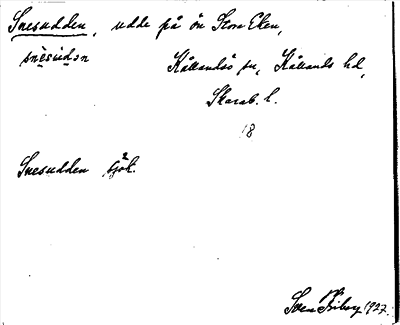 Snesudden, udde på ön Stora Eken,
snèsùdən Kållandsö sn, Kållands hd,
Skarab. l.
18
Snesudden sjök.
Sven Friberg 1927.